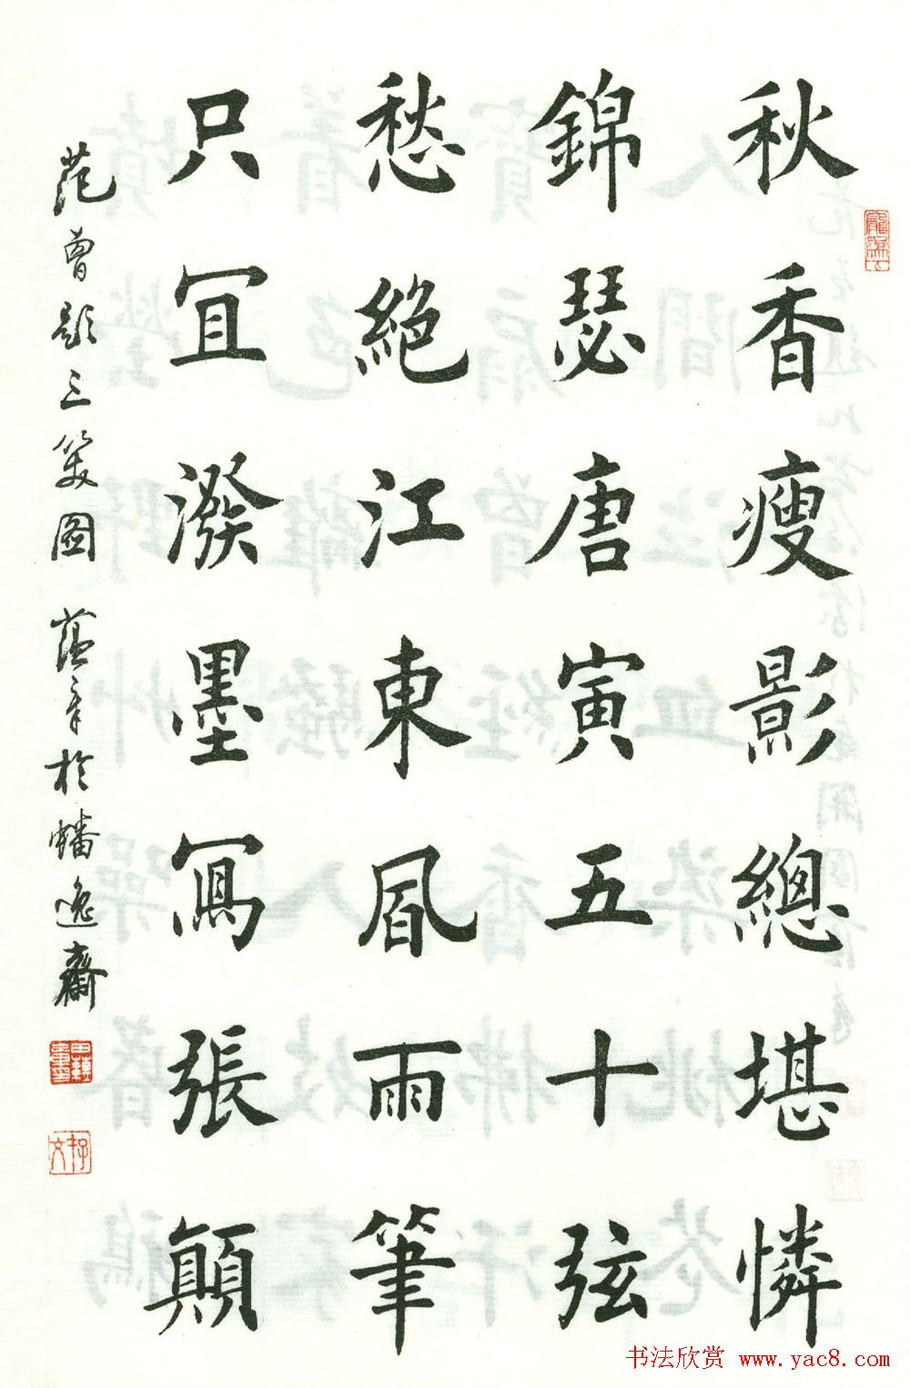 秋香瘦影總堪憐
錦瑟唐寅五十弦
愁絶江東風雨筆
只宜潑墨寫張顛
范曾題三笑圖 蕴章於蟠逸齋
书法欣赏 www.yac8.com